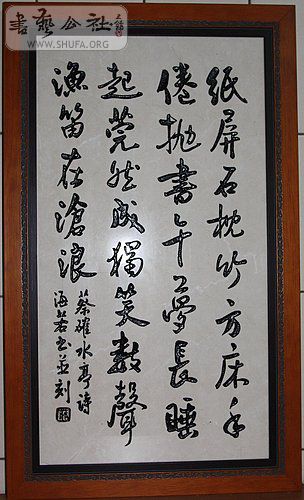 書藝公社
WWW.SHUFA.ORG
紙屏石枕竹方床手
倦抛書午夢長睡
起莞然成獨笑數聲
漁笛在滄浪
蔡確水亭诗
海若书並刻